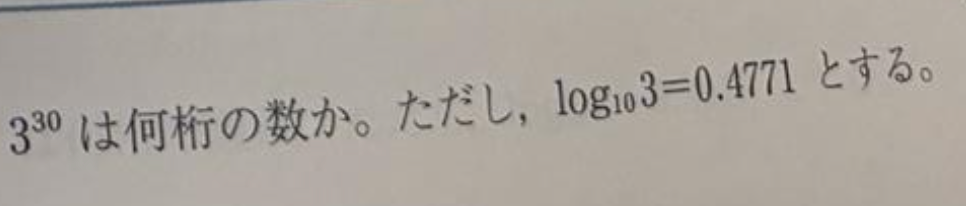 3³⁰ は何桁の数か。ただし, log₁₀3=0.4771 とする。